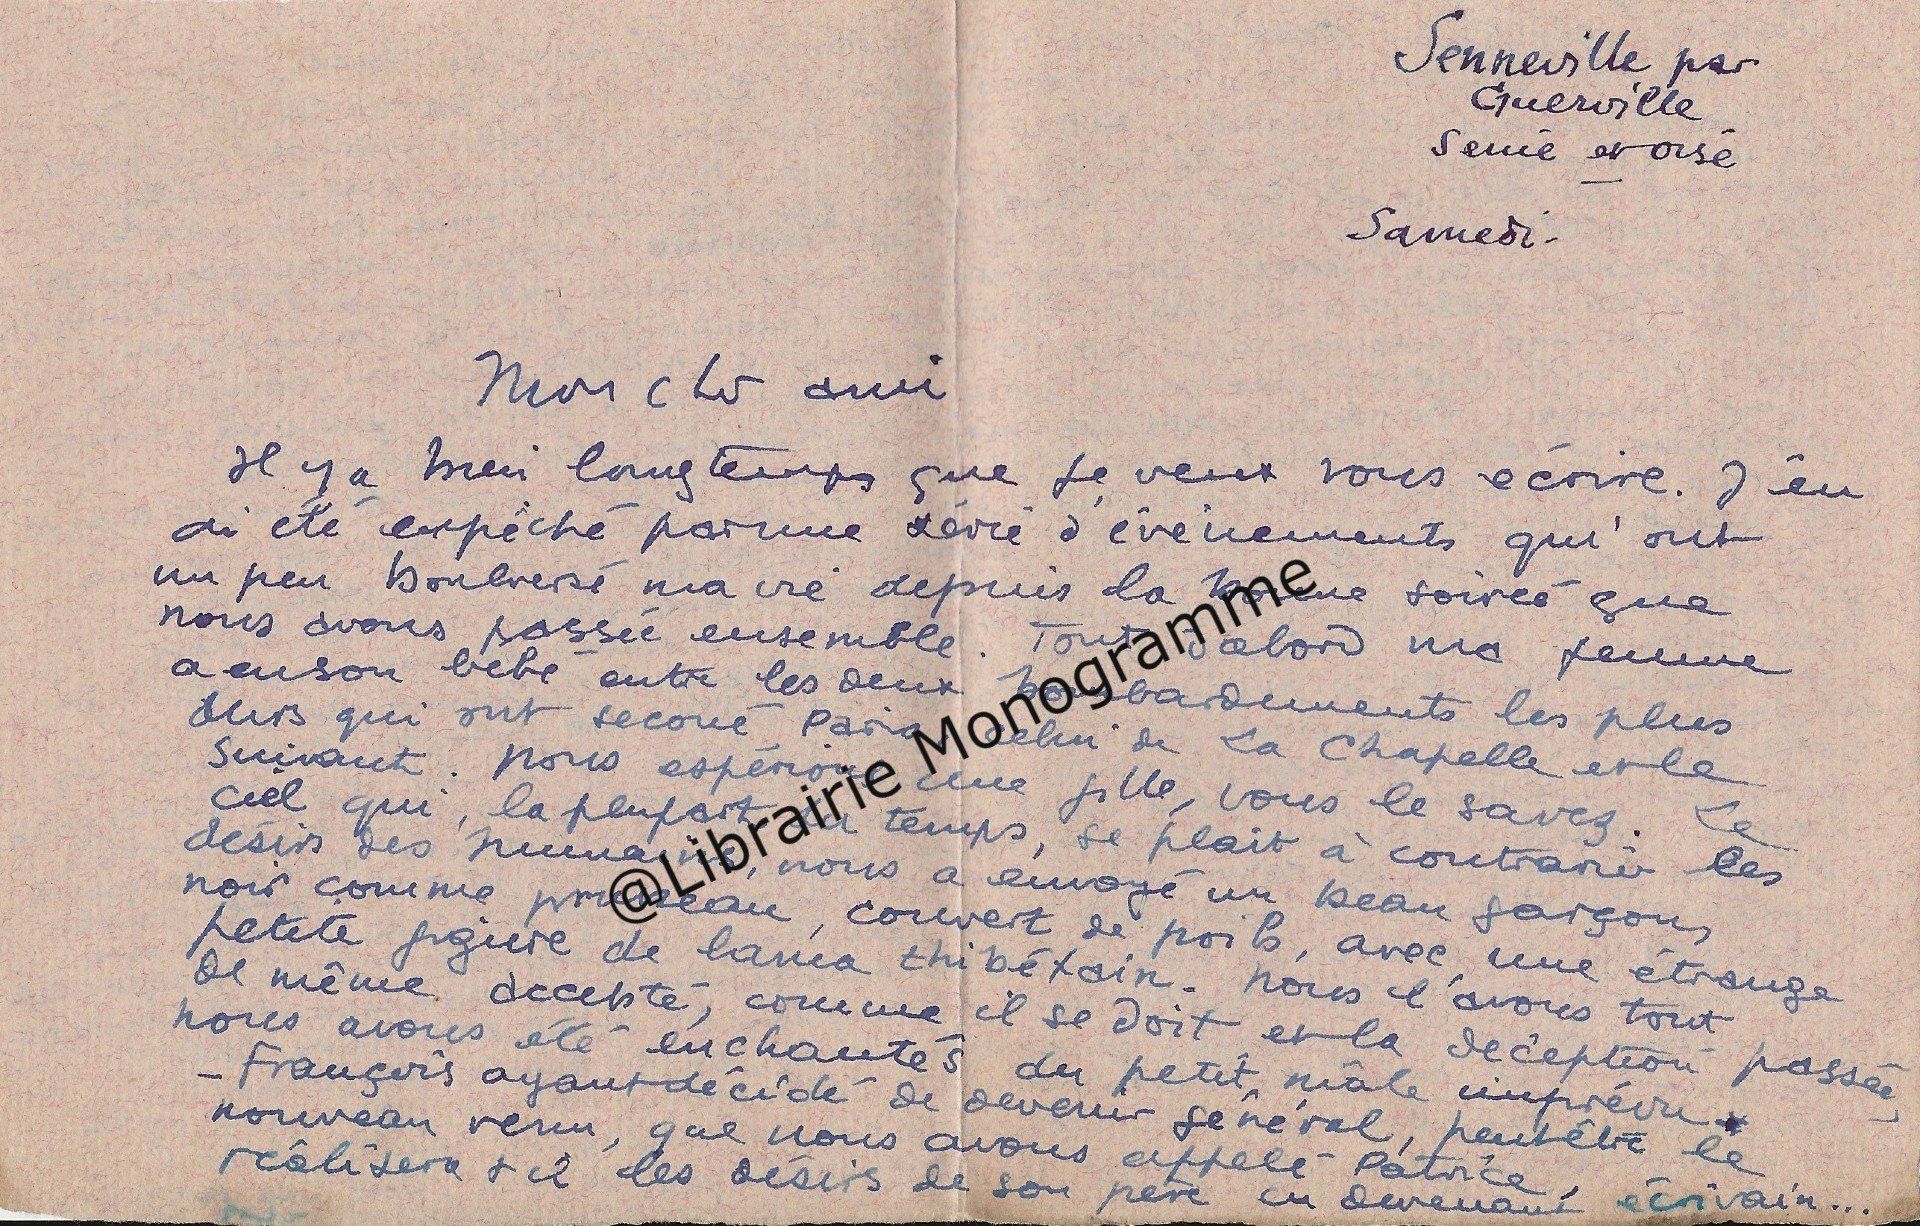 Senneville par
Guerville
Seine et Oise
Samedi -
Mon cher ami
Il y a bien longtemps que je veux vous écrire. J'en
ai été empêché par une série d'événements qui ont
un peu boulversé ma vie depuis la bonne soirée que
nous avons passée ensemble. Tout d'abord ma femme
a eu son bébé entre les deux bombardements les plus
durs qui ont secoué Paris, celui de La Chapelle et le
suivant. Nous espérions une fille, vous le savez. Le
ciel qui, la plupart du temps, se plait à contrarier les
désirs des humains, nous a envoyé un beau garçon,
noir comme pruneau, couvert de poils, avec une étrange
petite figure de lama thibétain. Nous l'avons tout
de même accepté, comme il se doit et la déception passée,
nous avons été enchantés du petit mâle imprévu.
- François ayant décidé de devenir général, peut être le
nouveau venu, que nous avons appelé Patrice,
réalisera t il les désirs de son père en devenant écrivain...
@Librairie Monogramme